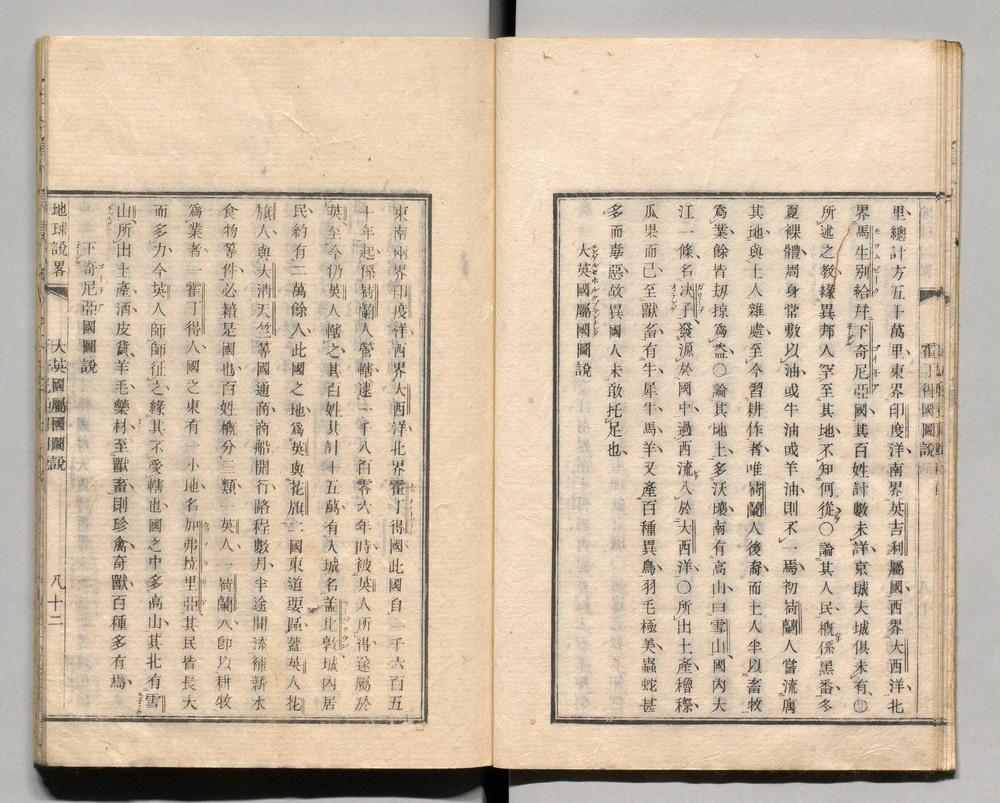 里總計方五十萬里東界印度洋南界英吉利屬國西界大西洋北
界馬生別給幷下奇尼亞國其百姓計數未詳京城大城俱未有
所述之教緣異邦人罕至其地不知何從〇論其人民概係黑番冬
夏裸體周身常敷以油或牛油或羊油則不一焉初荷蘭人嘗流寓
其地與土人雜處至今習耕作者唯荷蘭人後裔而土人半以畜牧
爲業餘皆刧掠爲盜〇論其地土多沃壤南有高山曰雪山國內大
江一條名決子發源於國中過西流入於大西洋〇所出土產穭穄
瓜果而已至獸畜有牛犀牛馬羊又產百種異鳥羽毛極美蟲蛇甚
多而毒惡故異國人未敢托足也
大英國屬國圖說
東南兩界印度洋西界大西洋北界霍丁得國此國自一千六百五
十年起係荷蘭人管轄逮一千八百零六年時被英人所得遂屬於
英至今仍英人轄之其百姓共計十五萬有大城名蓋北敦城內居
民約有二萬餘人此國之地爲英與花旗二國東道要區蓋英人花
旗人與大淸天竺等國通商商船開行路程數月半途間添補薪水
食物等件必藉是國也百姓概分三類一英人一荷蘭人卽以耕牧
爲業者一霍丁得人國之東有一小地名加弗拉里亞其民皆長大
而多力今英人師師征之緣其不愛轄也國之中多高山其北有雪
山所出土產酒皮貨羊毛藥材至獸畜則珍禽奇獸百種多有
下奇尼亞國圖說
地球說畧
大英國屬國圖說
八十二